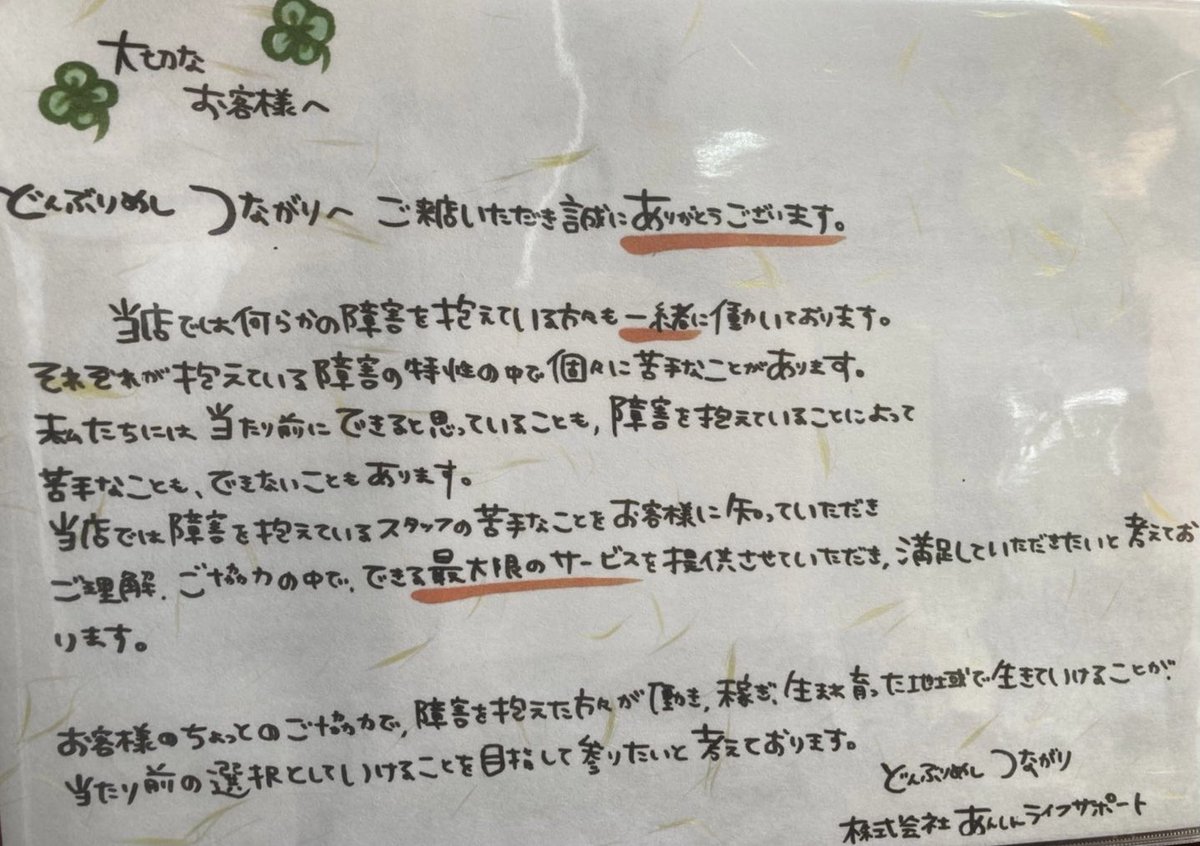 大切な
お客様へ
どんぶりめし つながりへ ご来店いただき誠にありがとうございます。
当店では何らかの障害を抱えている方々も一緒に働いております。
それぞれが抱えている障害の特性の中で個々に苦手なことがあります。
私たちには当たり前にできると思っていることも,障害を抱えていることによって
苦手なことも、できないこともあります。
当店では障害を抱えているスタッフの苦手なことをお客様に知っていただき
ご理解、ご協力の中で、できる最大限のサービスを提供させていただき,満足していただきたいと考えてお
ります。
お客様のちょっとのご協力で,障害を抱えた方々が働き,稼ぎ、生まれ育った地域で生きていけることが、
当たり前の選択としていけることを目指して参りたいと考えております。
どんぶりめし つながり
株式会社 あんしんライフサポート